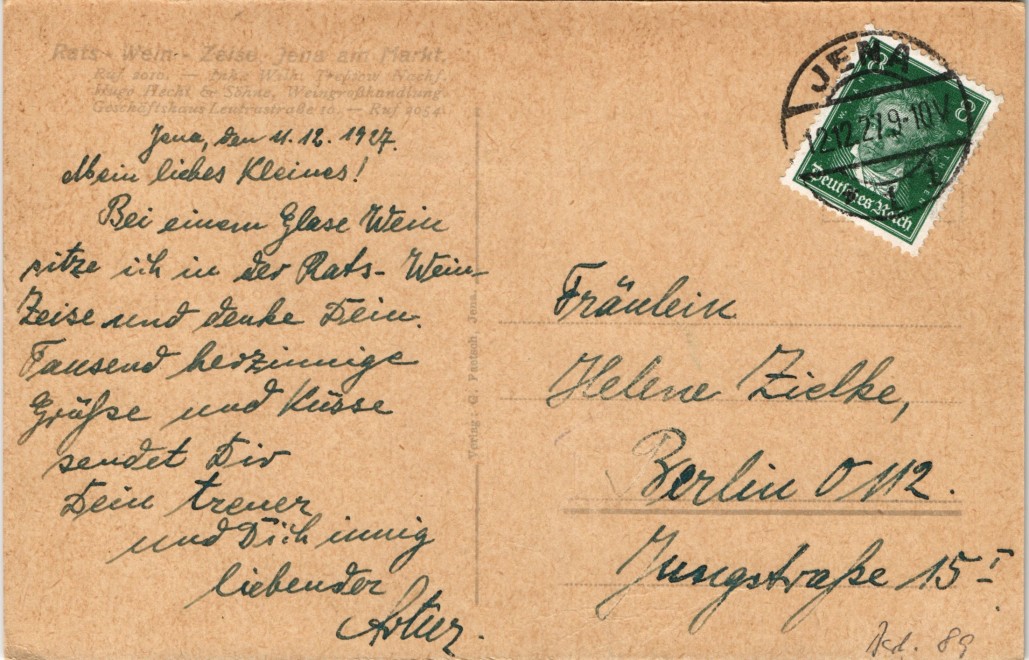 Rats-Wein-Zeise, Jena am Markt.
Ruf 2010. — Inh. Wilh. Treskow Nachf.
Hugo Hecht & Söhne, Weingroßhandlung
Geschäftshaus Leutrastraße 10. — Ruf
Jena, den 11.12.1927.
Mein liebes Kleines!
Bei einem Glase Wein
sitze ich in der Rats-Wein-
Zeise und denke Dein.
Tausend herzinnige
Grüße und Küsse
sendet Dir
Dein treuer
und Dich innig
liebender
Artur.
Verlag: G. Pantsch, Jena.
JENA
12.12.27.9-10V.
8
8
Deutsches Reich
Fräulein
Helene Zielke,
Berlin O 112.
Jungstraße 15 I
89